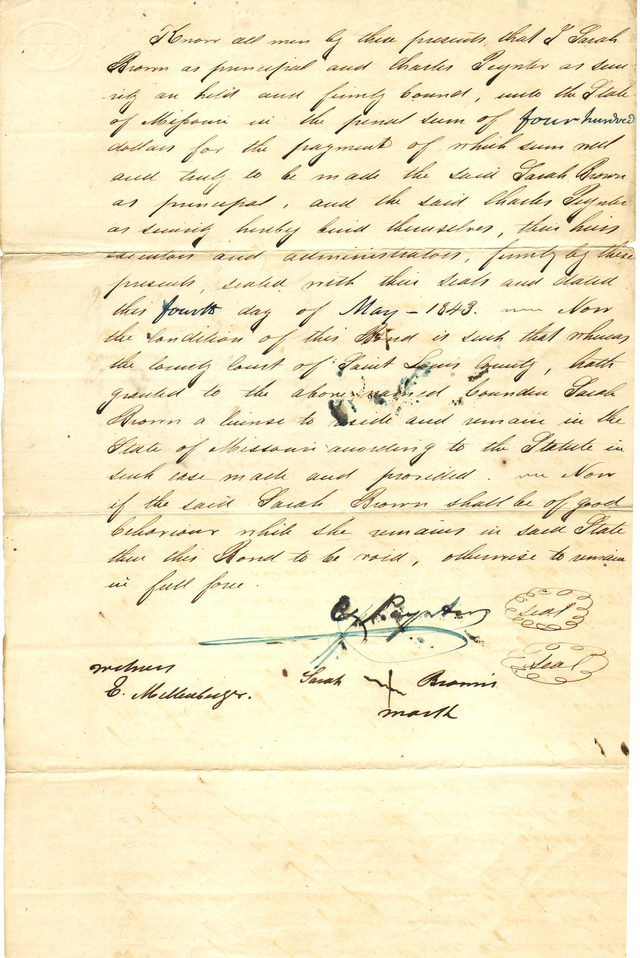 Know all men by these presents that I Sarah
Brown as principal and Charles Paynter as secu
rity are held and firmly bound, unto the State
of Missouri in the penal sum of four hundred
dollars for the payment of which sum well
and truly to be made the said Sarah Brown
as principal, and the said Charles Paynter
as security hereby bind themselves, their heirs
executors and administrators, firmly by these
presents, sealed with their seals and dated
this fourth day of May – 1843. Now
the condition of this Bond is such that whereas
the County Court of Saint Louis County, hath
granted to the above named bounden Sarah
Brown a license to reside and remain in the
State of Missouri according to the Statute in
such case made and provided. Now
if the said Sarah Brown shall be of good
behaviour while she remains in said State
then this Bond to be void, otherwise to remain
in full force.
Paynter seal
seal
witness Sarah Brown's
E. Mellenberger. mark